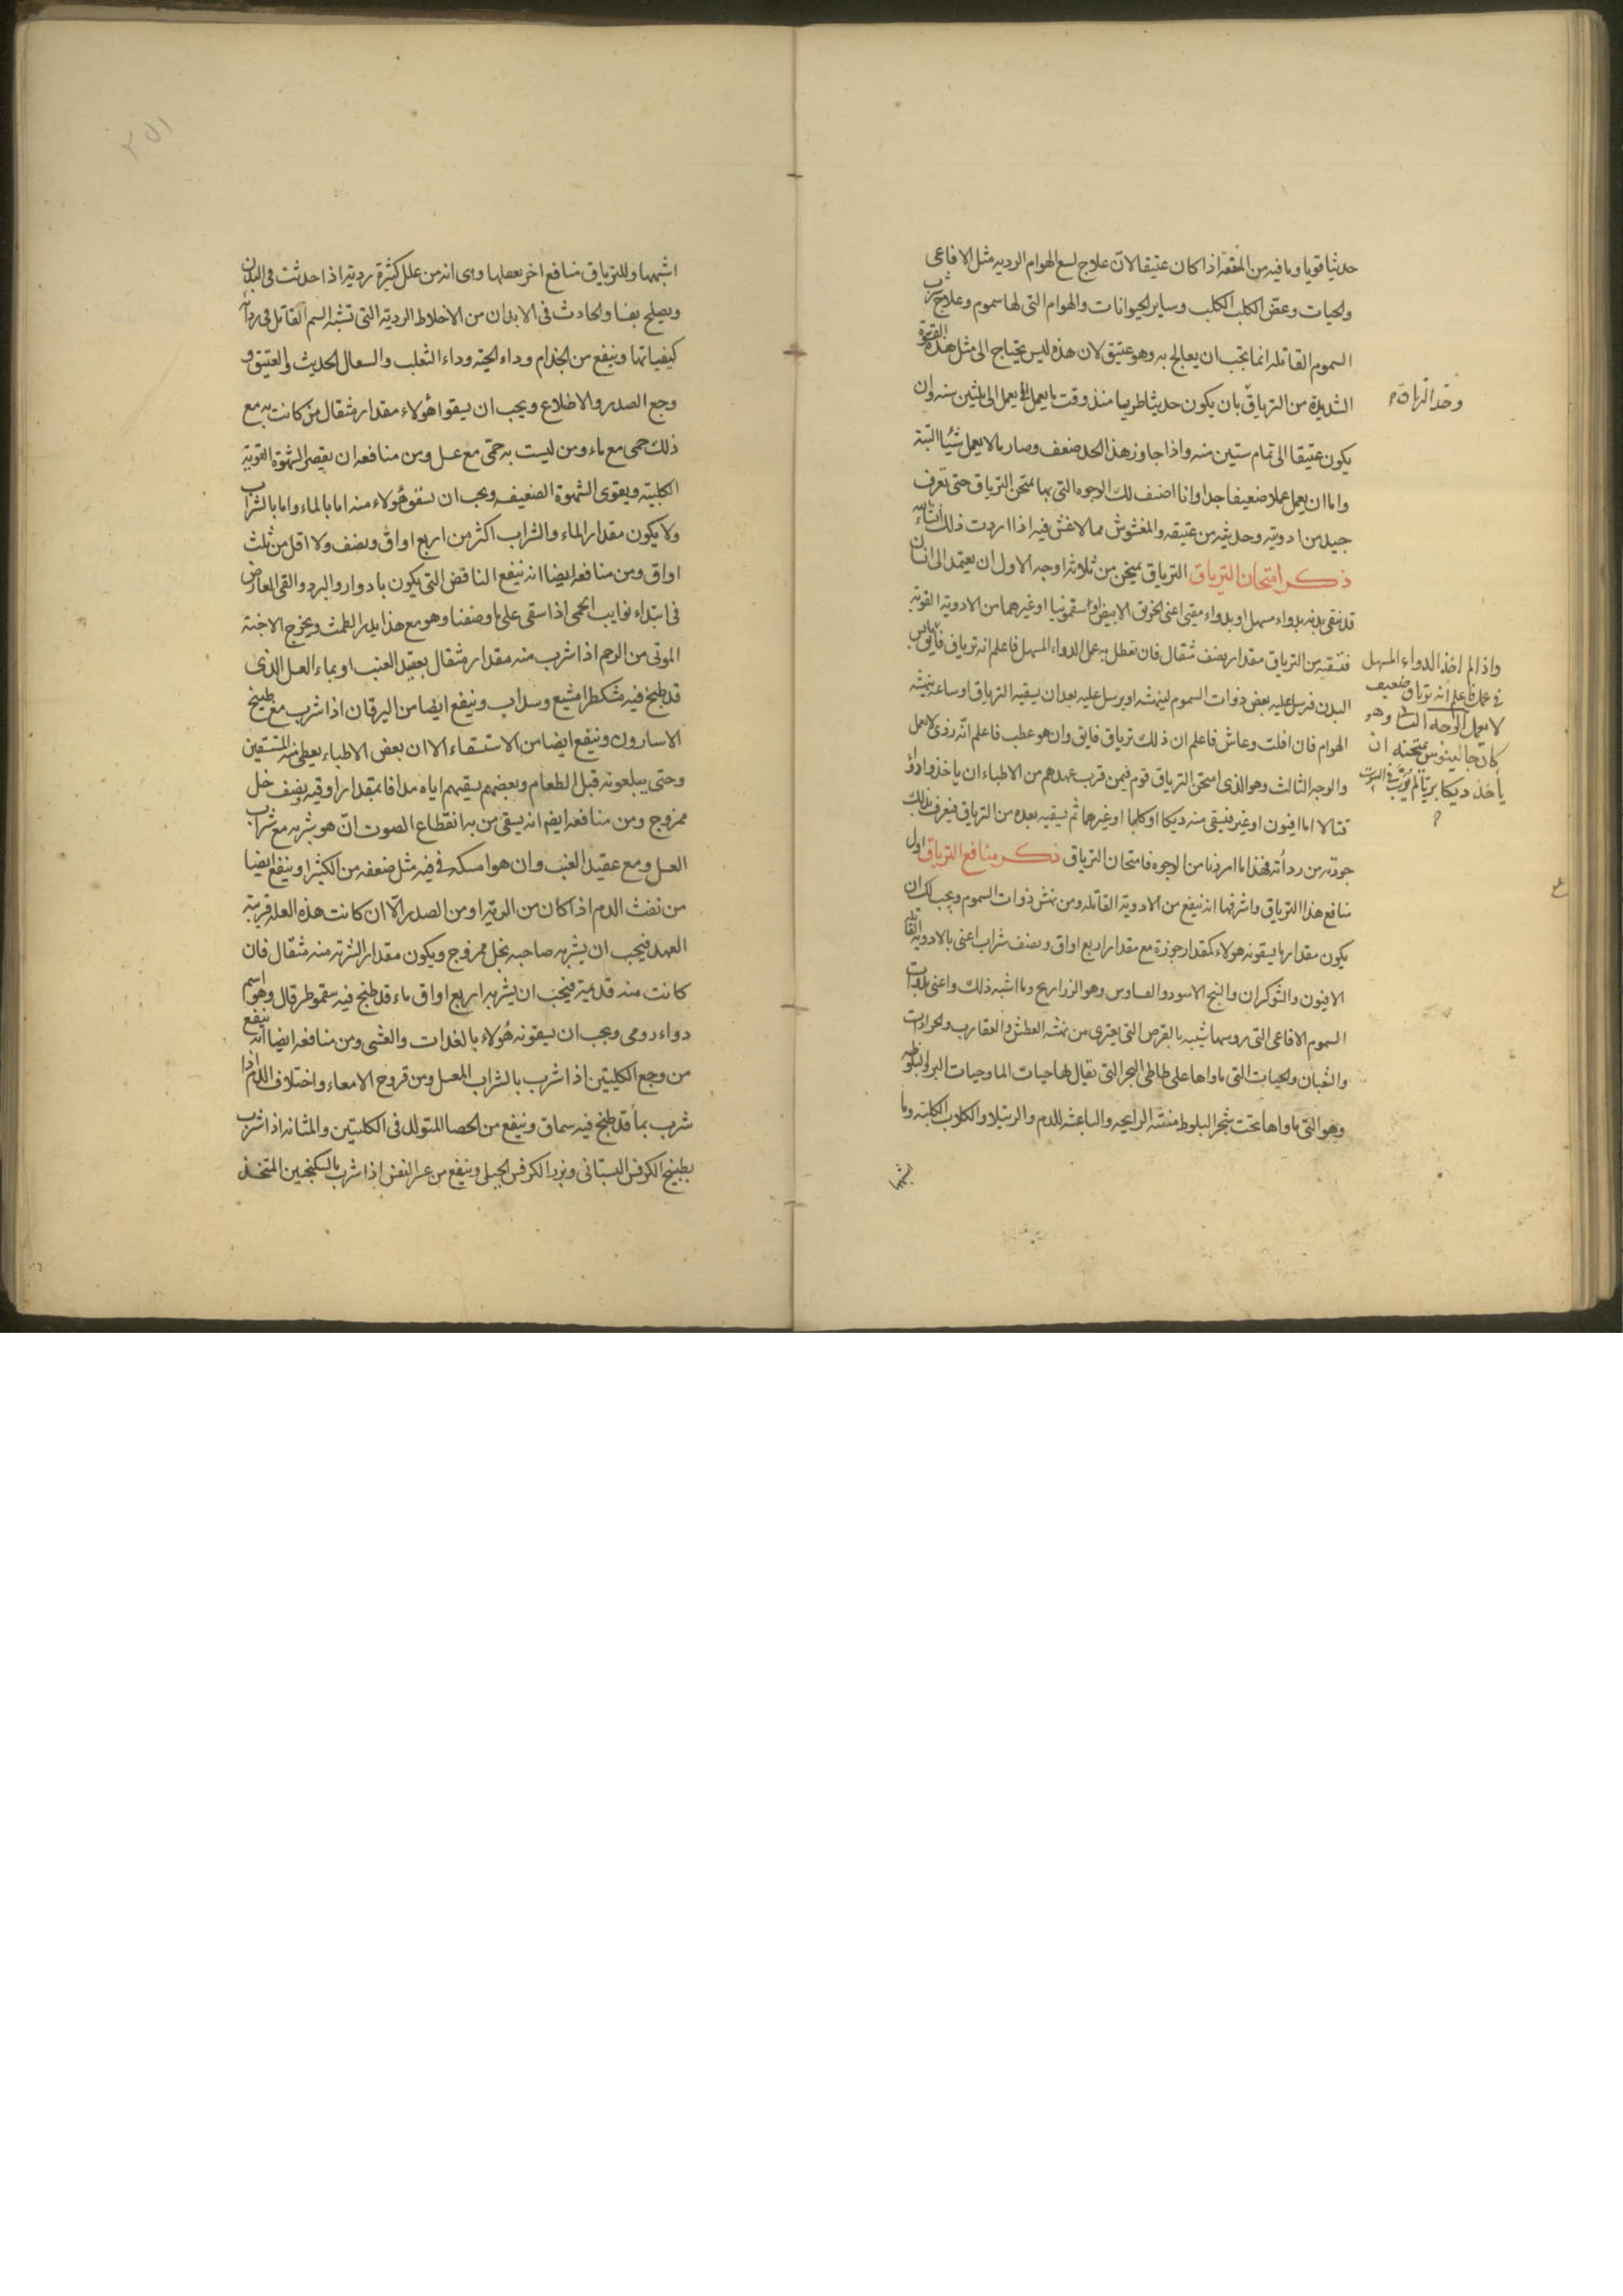 حديثا قويا وما فيه من المنفعة اذا كان عتيقا لان علاج لسع الهوام الرديه مثل الافاعى
والحيات وعض الكلب الكلب وساير الحيوانات والهوام التى لها سموم وعلاج شرب
السموم القاتله انما يجب ان يعالج به وهو عتيق لان هذه ليس يحتاج الى مثل هذه القوة
الشديدة من الترياق بان يكون حديثا طريا منذ وقت ما يعمل الى ثلثين سنه وان
وحد الترياق
يكون عتيقا الى تمام ستين سنه واذا جاوز هذا الحد ضعف وصار ما لا يعمل شيئا البتة
واما ان يعمل عملا ضعيفا جدا وانا اصف لك الوجوه التى بها يمتحن الترياق حتى تعرف
جيد من ادويته وحديثه من عتيقه والمغشوش مما لا غش فيه اذا اردت ذلك ان شاء الله
ذكر امتحان الترياق الترياق يمتحن من ثلاثة اوجه الاول ان يعتمد الى انسان
قد نقى بدنه بدواء مسهل او بدواء مقيئ اعنى الخربق الابيض او سقمونيا او غيرهما من الادوية القوية
فتسقيه من الترياق مقدار نصف مثقال فان تعطل به عمل الدواء المسهل فاعلم انه ترياق فايق
واذا لم اخذ الدواء المسهل
فى عمله فاعلم انه ترياق ضعيف
لا يعمل الوجه الثانى وهو
كان جالينوس يمتحنه ان
يأخذ ديكا بريا لم يُربَّ فى البيوت
البدن فترسل عليه بعض ذوات السموم لينهشه او يرسل عليه بعد ان يسقيه الترياق او ساعة ينهشه
الهوام فان افلت وعاش فاعلم ان ذلك ترياق فايق وان هو عطب فاعلم انه ردى لا يعمل
والوجه الثالث وهو الذى امتحن الترياق قوم فيمن قرب عهدهم من الاطباء ان ياخذ دواء
قتالا اما افيون او غير فيسقى منه ديكا او كلبا او غيرهما ثم يسقيه بعده من الترياق فيعرف بذلك
جودته من رداته فهذا ما امرنا من الوجوه فامتحان الترياق ذكر منافع الترياق اول
منافع هذا الترياق واشرفها انه ينفع من الادوية القاتله ومن نهش ذوات السموم ويجب لك ان
يكون مقدار ما يسقونه هولاء كمقدار جوزة مع مقدار اربع اواق ونصف شراب اعنى بالادوية القاتله
الافيون والشوكران والبنج الاسود والفساوس وهو الزرابيح وما اشبه ذلك واعنى بذوات
السموم الافاعى التى روسها شبيه بالقرص التى يعترى من نهشه العطش والعقارب والجرارات
والثعبان والحيات التى ماواها على شاطى البحر التى يقال لها حيات الما وحيات البر والبلوطيه
وهو التى ماواها تحت شجر البلوط منتنة الرايحه والباعثه للدم والرتيلا والكلاب الكلبة وما
اشبهها
اشبهها وللترياق منافع اخر يعملها وهى انه من علل كثيرة رديه اذا حدثت فى البدن
ويصلح بها والحادث فى الابدان من الاخلاط الردية التى تشبه السم القاتل فى رداة
كيفياتها وينفع من الجذام وداء الحيه وداء الثعلب والسعال الحديث والعتيق و
وجع الصدر والاضلاع ويجب ان يسقوا هولاء مقدار مثقال من كانت به مع
ذلك حمى مع ماء ومن ليست به حمى مع عسل ومن منافعه ان يقصر الشهوة القوية
الكلبيه ويقوى الشهوة الضعيفه ويجب ان يسقوه هولاء منه اما بالماء واما بالشراب
ولا يكون مقدار الماء والشراب اكثر من اربع اواق ونصف ولا اقل من ثلث
اواق ومن منافعه ايضا انه ينفع النافض التى يكون بادوار والبرد والقى العارض
فى ابتداء نوايب الحمى اذا سقى على ما وصفنا وهو مع هذا يدر الطمث ويخرج الاجنة
الموتى من الرحم اذا شرب منه مقدار مثقال بعقيد العنب او بماء العسل الذى
قد طبخ فيه مشكطرامشيع وسداب وينفع ايضا من اليرقان اذا شرب مع طبيخ
الاسارون وينفع ايضا من الاستسقاء الا ان بعض الاطباء يعطى منه المستسقين
وحتى يبلعونه قبل الطعام وبعضهم يسقيهم اياه مدافا بمقدار اوقيه ونصف خل
ممزوج ومن منافعه ايضم انه يسقى من به انقطاع الصوت ان هو شربه مع شراب
العسل ومع عقيد العنب وان هو امسكه فى فيه مثل ضعفه من الكثيرا وينفع ايضا
من نفث الدم اذا كان من الرية او من الصدر الا ان كانت هذه العلة قريبة
العهد فيجب ان يشربه صاحبه بخل ممزوج ويكون مقدار الشربة منه مثقال فان
كانت منه قديمة فيجب ان يشربه اربع اواق ماء قد طبخ فيه سقموطر قال وهو اسم
دواء رومى ويجب ان يسقونه هُولاء بالغدات والعشى ومن منافعه ايضا انه ينفع
من وجع الكليتين اذا شرب بالشراب المعسل ومن قروح الامعاء واختلاف الدم اذا
شرب بماء قد طبخ فيه سماق وينفع من الحصا المتولد فى الكليتين والمثانه اذا شرب
بطبيخ الكرفس البستانى وبزر الكرفس الجبلى وينفع من عسر النفس اذا شرب بالسكنجبين المتخذ